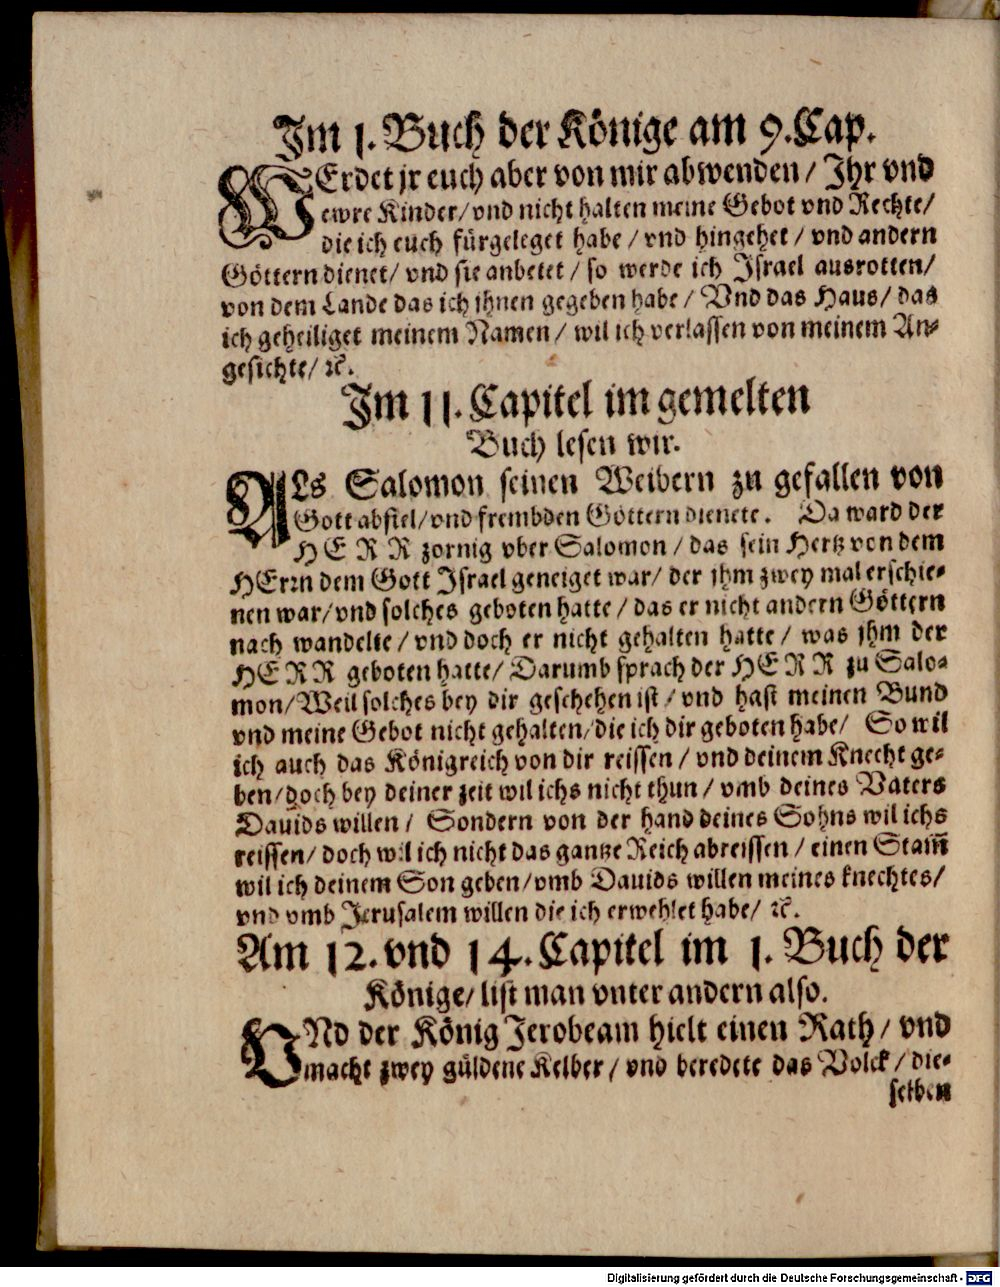 Im 1. Buch der Könige am 9. Cap.
WErdet jr euch aber von mir abwenden / Ihr vnd
ewre Kinder / vnd nicht halten meine Gebot vnd Rechte /
die ich euch fürgeleget habe / vnd hingehet / vnd andern
Göttern dienet / vnd sie anbetet / so werde ich Israel ausrotten /
von dem Lande das ich jhnen gegeben habe / Vnd das Haus / das
ich geheiliget meinem Namen / wil ich verlassen von meinem An-
gesichte / ꝛc.
Im 11. Capitel im gemelten
Buch lesen wir.
ALs Salomon seinen Weibern zu gefallen von
Gott abfiel / vnd frembden Göttern dienete. Da ward der
HERR zornig vber Salomon / das sein Hertz von dem
HErrn dem Gott Israel geneiget war / der jhm zwey mal erschie-
nen war / vnd solches geboten hatte / das er nicht andern Göttern
nach wandelte / vnd doch er nicht gehalten hatte / was jhm der
HERR geboten hatte / Darumb sprach der HERR zu Salo-
mon / Weil solches bey dir geschehen ist / vnd hast meinen Bund
vnd meine Gebot nicht gehalten / die ich dir geboten habe / So wil
ich auch das Königreich von dir reissen / vnd deinem Knecht ge-
ben / doch bey deiner zeit wil ichs nicht thun / vmb deines Vaters
Dauids willen / Sondern von der hand deines Sohns wil ichs
reissen / doch wil ich nicht das gantze Reich abreissen / einen Stam̃
wil ich deinem Son geben / vmb Dauids willen meines knechtes /
vnd vmb Jerusalem willen die ich erwehlet habe / ꝛc.
Am 12. vnd 14. Capitel im 1. Buch der
Könige / list man vnter andern also.
VNd der König Jerobeam hielt einen Rath / vnd
macht zwey güldene Kelber / vnd beredete das Volck / die-
selben
Digitalisierung gefördert durch die Deutsche Forschungsgemeinschaft - DFG